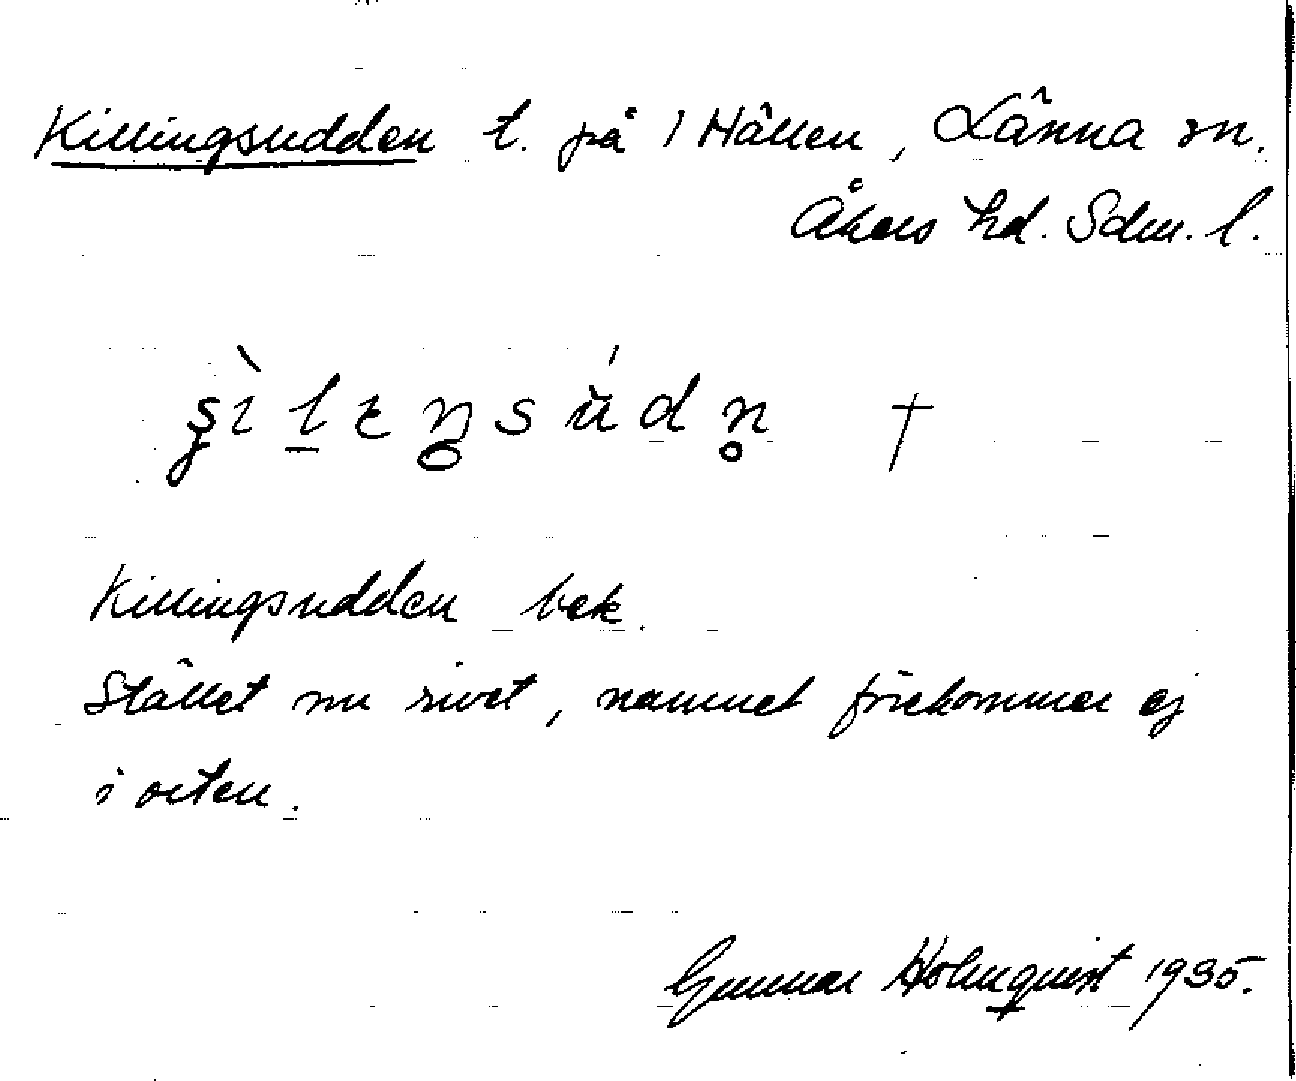 Killingsudden t. på 1 Hällen, Länna sn.
Åkers hd. Sdm. l.
Killingsudden bek.
Stället nu rivet, namnet förekommer ej
i orten.
Gunnar Holmquist 1935.